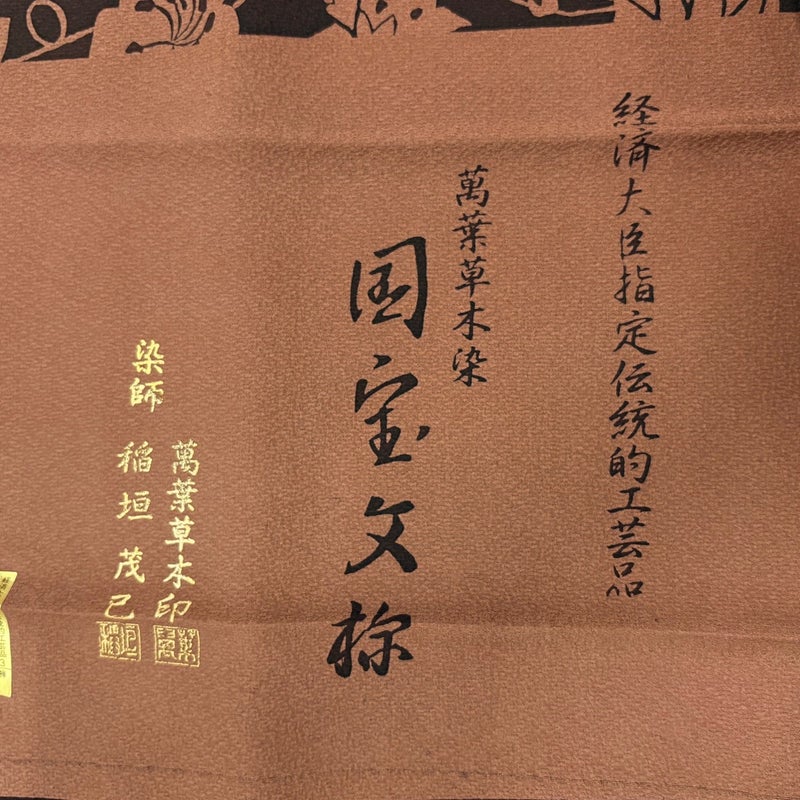 経済大臣指定伝統的工芸品
萬葉草木染
国宝文様
萬葉草木印
染師 稲垣茂巳